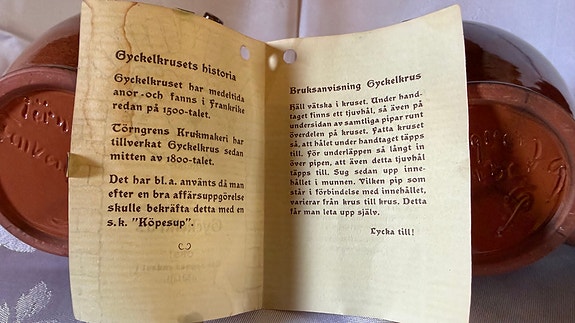 Gyckelkrusets historia
Gyckelkruset har medeltida
anor och fanns i Frankrike
redan på 1500-talet.
Törngrens Krukmakeri har
tillverkat Gyckelkrus sedan
mitten av 1800-talet.
Det har bl.a. använts då man
efter en bra affärsuppgörelse
skulle bekräfta detta med en
s.k. "Köpesup".
Bruksanvisning Gyckelkrus
Häll vätska i kruset. Under hand-
taget finns ett tjuvhål, så även på
undersidan av samtliga pipar runt
överdelen på kruset. Fatta kruset
så, att hålet under handtaget täpps
till. För underläppen så långt in
över pipen, att även detta tjuvhål
täpps till. Sug sedan upp inne-
hållet i munnen. Vilken pip som
står i förbindelse med innehållet,
varierar från krus till krus. Detta
får man leta upp själv.
Lycka till!